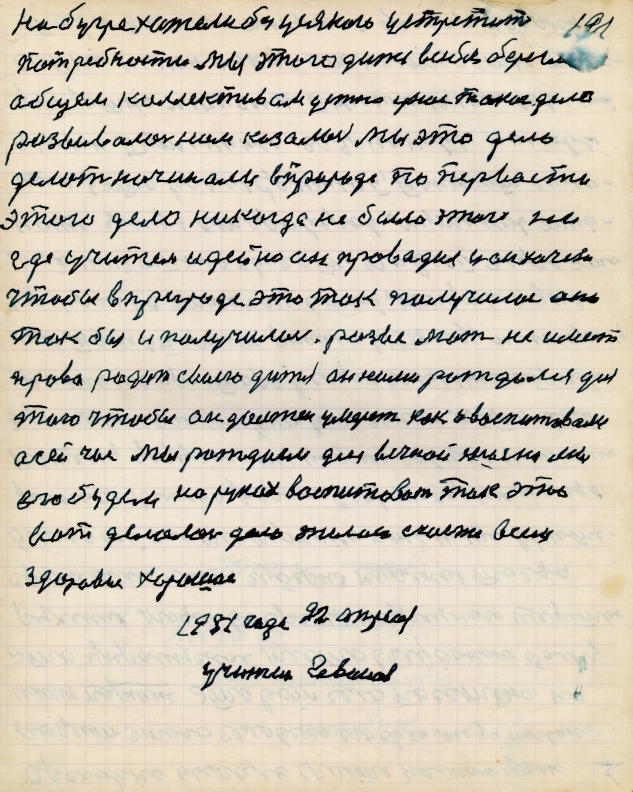 на бугре хотели бы усякого устретит 191
потребности мы этого дитя в себя
общем коллективом дело
розвивалос нам казалос мы это дело
делат начинали в природе по первости
этого дела никогда не было этого ни
где учител идейно он проводил и он хочет
чтобы в природе это так получилос оно
так бы и получилос. розве мат не имеит
права родит своего дитя он нами рождался для
того чтобы он должен умерет как и воспитовали
а сейчас мы рождаем для вечной жизни мы
его будем на руках воспитоват так это
вот делалос дело желаю счастя всем
здоровья хорошое
1981 года 22 апреля
учител Іванов